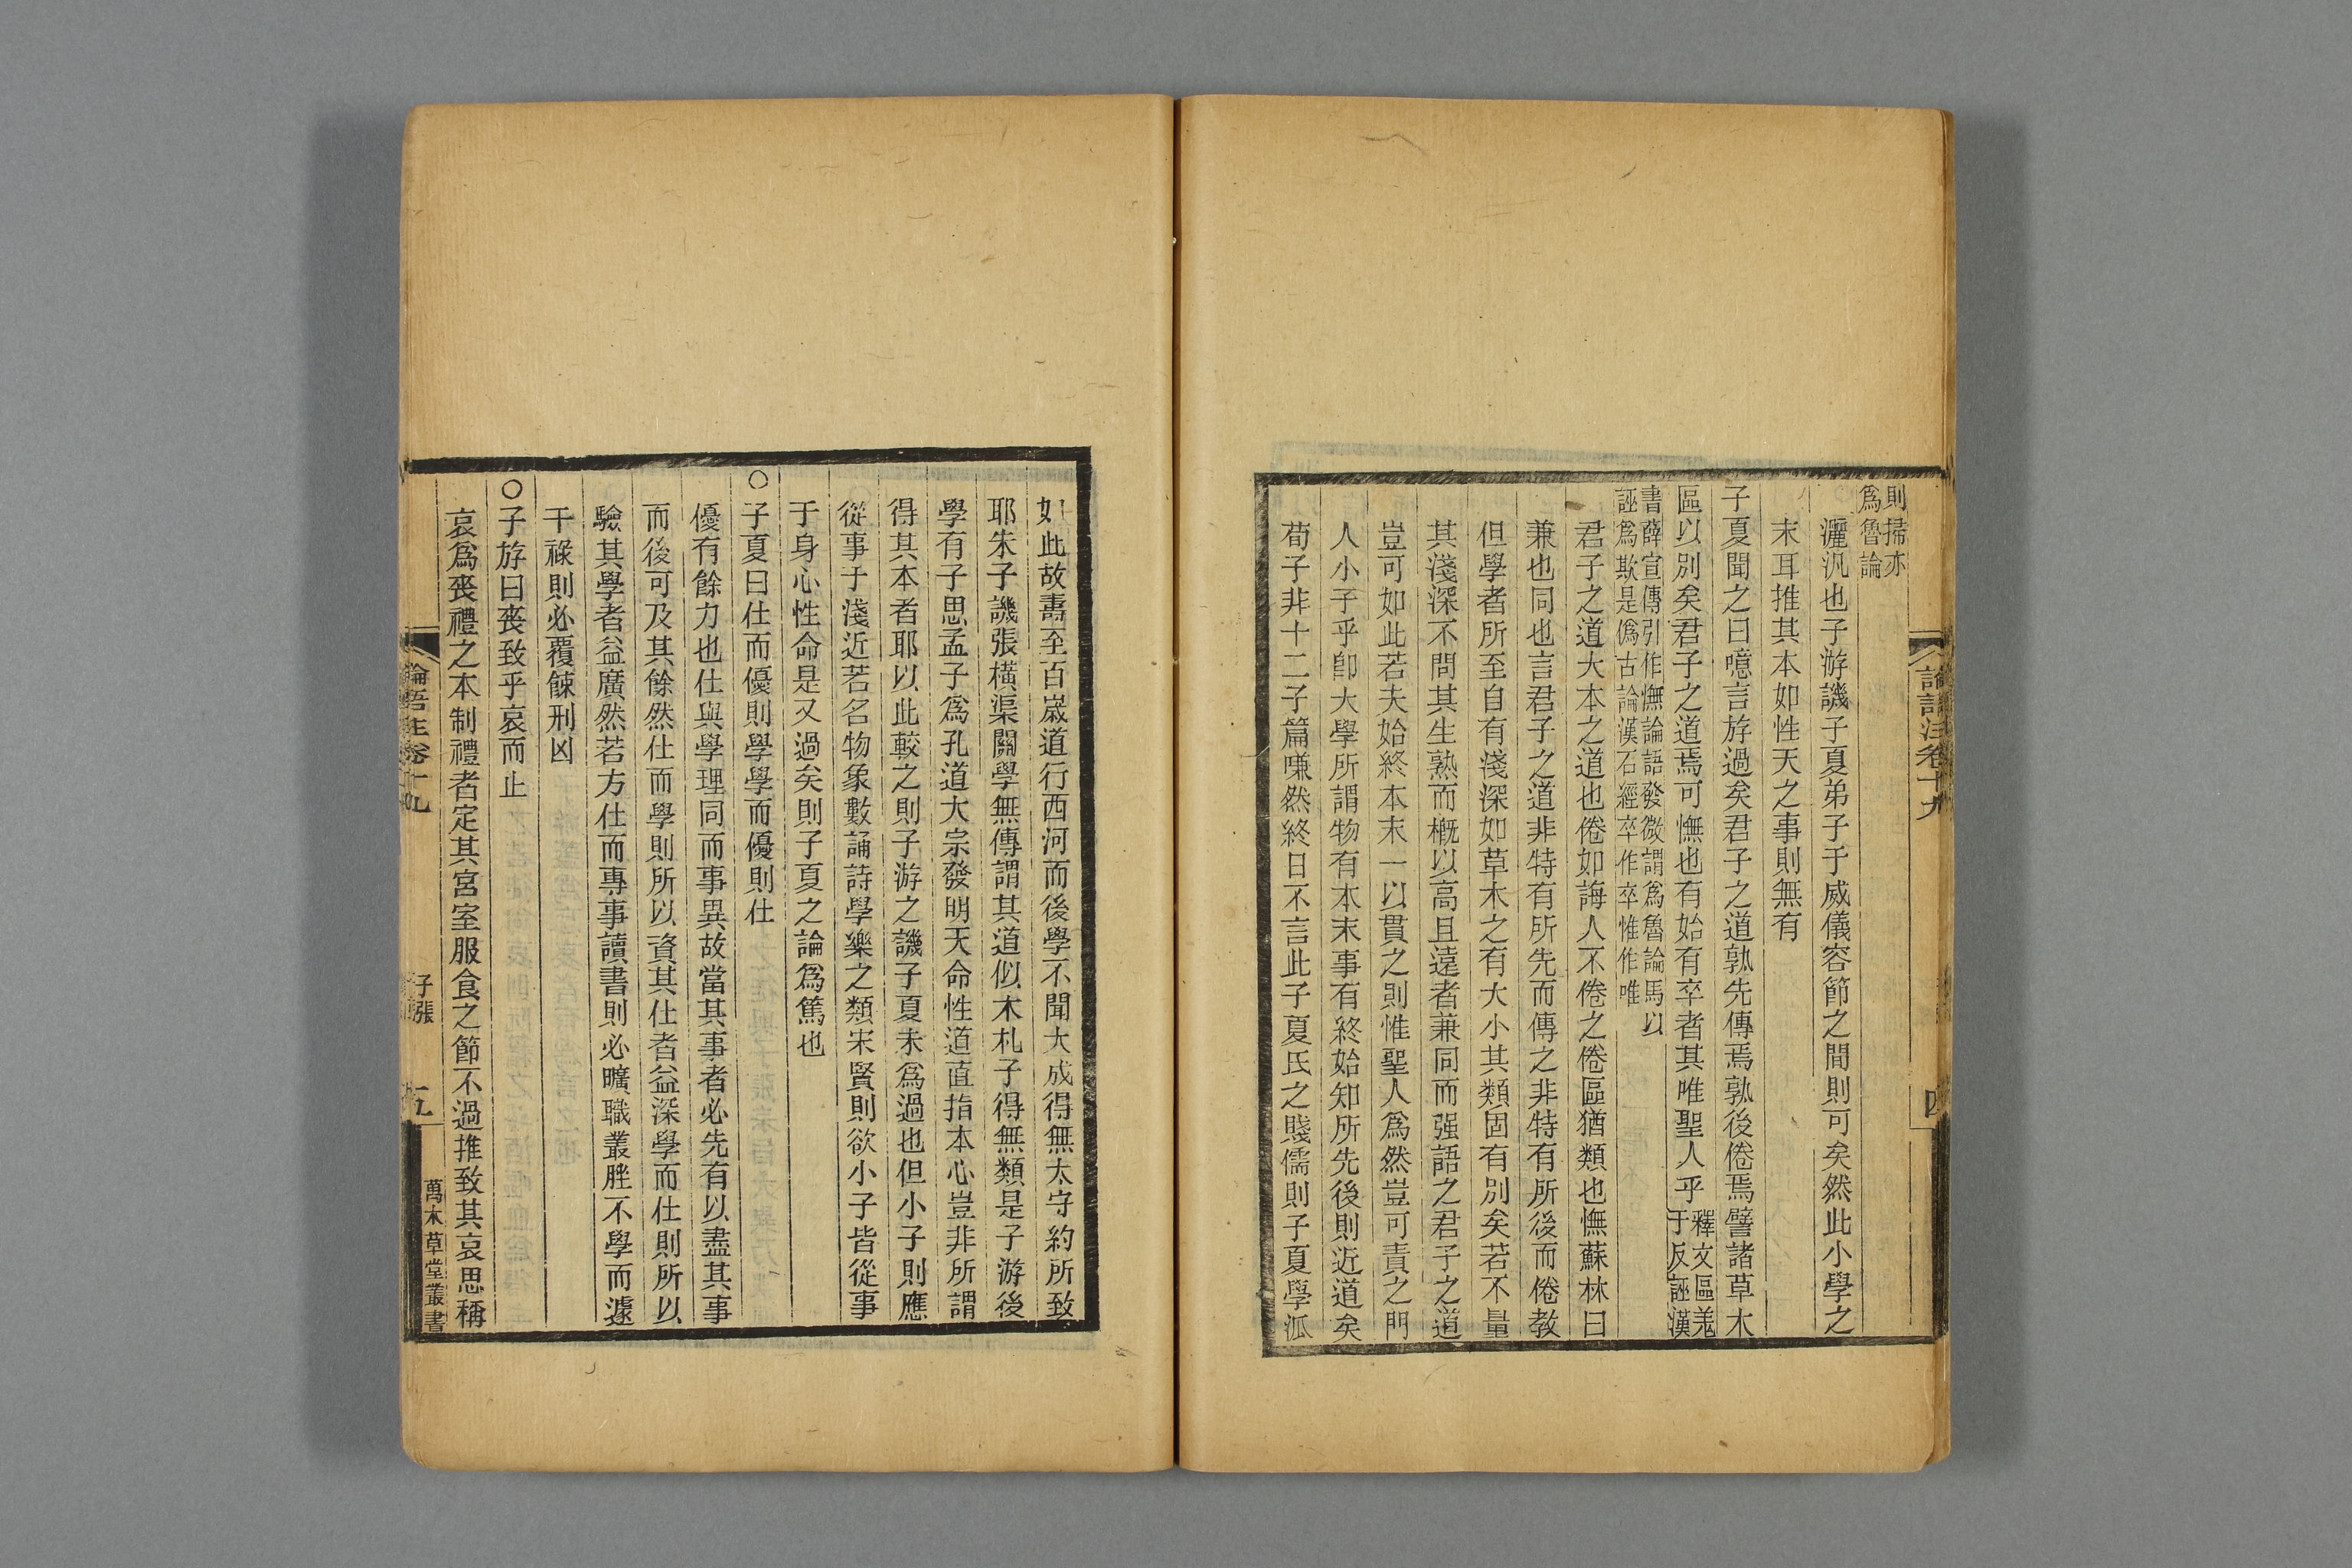 論語注卷十九
四
則掃亦
爲魯論
灑汎也子游譏子夏弟子于威儀容節之間則可矣然此小學之
末耳推其本如性天之事則無有
子夏聞之曰噫言斿過矣君子之道孰先傳焉孰後倦焉譬諸草木
區以別矣君子之道焉可憮也有始有卒者其唯聖人乎釋文區羌
于反誣漢
書薛宣傳引作憮論語發微謂爲魯論馬以
誣爲欺是僞古論漢石經卒作卒惟作唯
君子之道大本之道也倦如誨人不倦之倦區猶類也憮蘇林曰
兼也同也言君子之道非特有所先而傳之非特有所後而倦教
但學者所至自有淺深如草木之有大小其類固有別矣若不量
其淺深不問其生熟而槪以高且遠者兼同而强語之君子之道
豈可如此若夫始終本末一以貫之則惟聖人爲然豈可責之門
人小子乎卽大學所謂物有本末事有終始知所先後則近道矣
荀子非十二子篇嗛然終日不言此子夏氏之賤儒則子夏學派
如此故壽至百歲道行西河而後學不聞大成得無太守約所致
耶朱子譏張橫渠關學無傳謂其道似木札子得無類是子游後
學有子思孟子爲孔道大宗發明天命性道直指本心豈非所謂
得其本者耶以此較之則子游之譏子夏未爲過也但小子則應
從事于淺近若名物象數誦詩學樂之類宋賢則欲小子皆從事
于身心性命是又過矣則子夏之論爲篤也
○子夏曰仕而優則學學而優則仕
優有餘力也仕與學理同而事異故當其事者必先有以盡其事
而後可及其餘然仕而學則所以資其仕者益深學而仕則所以
驗其學者益廣然若方仕而專事讀書則必曠職叢脞不學而遽
干祿則必覆餗刑凶
○子斿曰喪致乎哀而止
哀爲喪禮之本制禮者定其宮室服食之節不過推致其哀思稱
論語注卷十九
子張
五
萬木草堂叢書